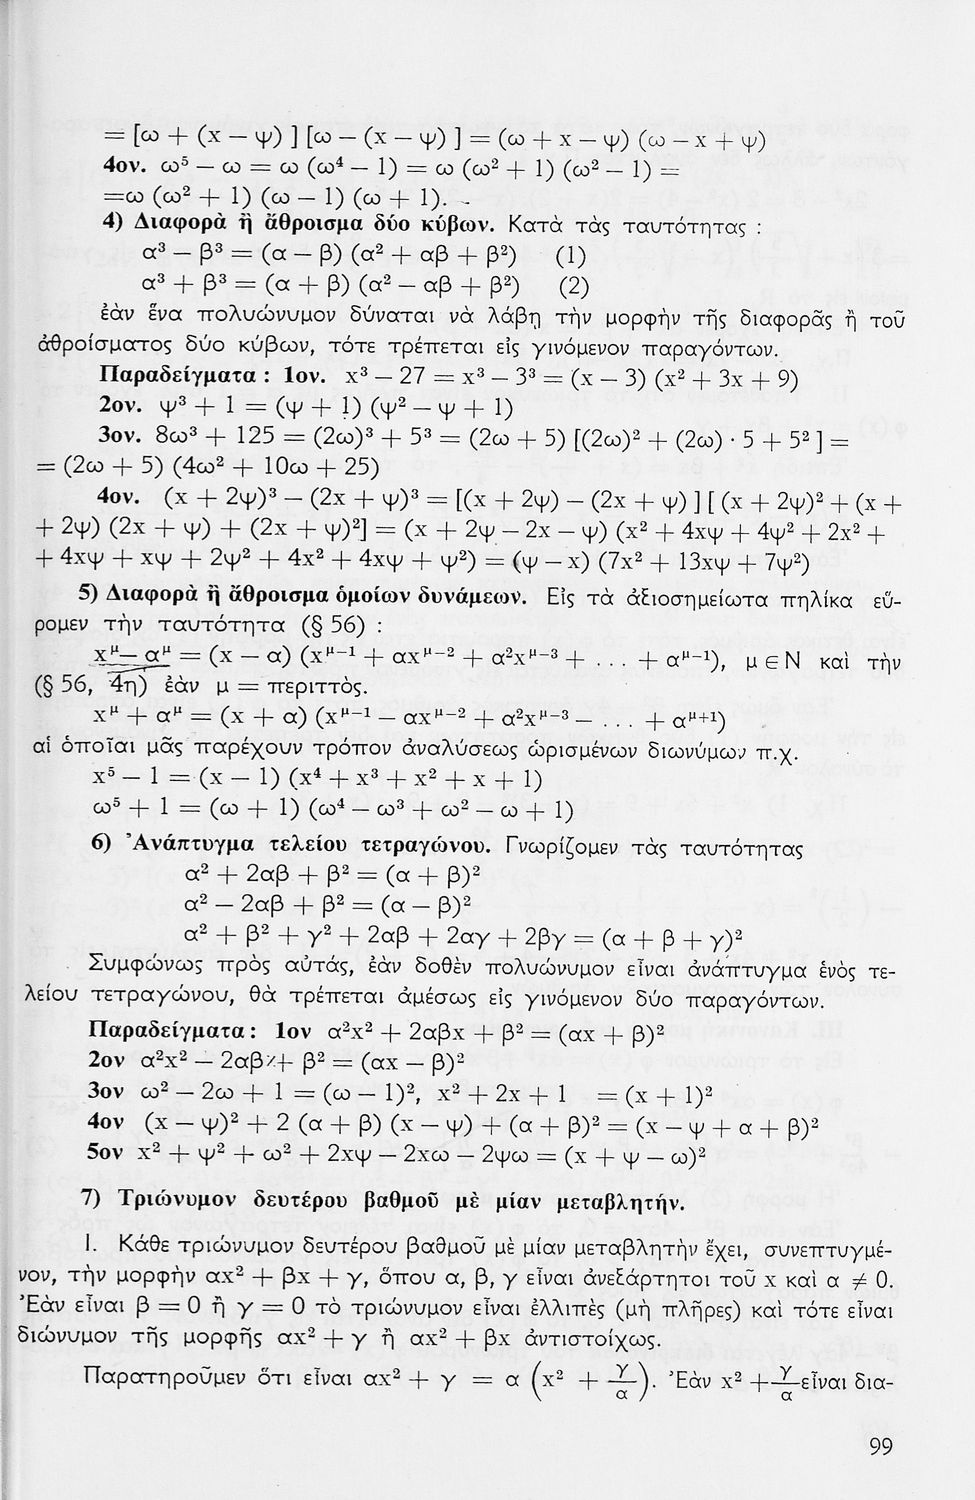 = [ω + (x — ψ) ] [ω — (x — ψ) ] = (ω + x — ψ) (ω — x + ψ)
4ον. ω⁵ — ω = ω (ω⁴ — 1) = ω (ω² + 1) (ω² — 1) =
=ω (ω² + 1) (ω — 1) (ω + 1).
4) Διαφορὰ ἢ ἄθροισμα δύο κύβων. Κατὰ τὰς ταυτότητας :
α³ — β³ = (α — β) (α² + αβ + β²) (1)
α³ + β³ = (α + β) (α² — αβ + β²) (2)
ἐὰν ἕνα πολυώνυμον δύναται νὰ λάβῃ τὴν μορφὴν τῆς διαφορᾶς ἢ τοῦ
ἀθροίσματος δύο κύβων, τότε τρέπεται εἰς γινόμενον παραγόντων.
Παραδείγματα : 1ον. x³ — 27 = x³ — 3³ = (x — 3) (x² + 3x + 9)
2ον. ψ³ + 1 = (ψ + 1) (ψ² — ψ + 1)
3ον. 8ω³ + 125 = (2ω)³ + 5³ = (2ω + 5) [(2ω)² + (2ω) · 5 + 5² ] =
= (2ω + 5) (4ω² + 10ω + 25)
4ον. (x + 2ψ)³ — (2x + ψ)³ = [(x + 2ψ) — (2x + ψ) ] [ (x + 2ψ)² + (x +
+ 2ψ) (2x + ψ) + (2x + ψ)²] = (x + 2ψ — 2x — ψ) (x² + 4xψ + 4ψ² + 2x² +
+ 4xψ + xψ + 2ψ² + 4x² + 4xψ + ψ²) = (ψ — x) (7x² + 13xψ + 7ψ²)
5) Διαφορὰ ἢ ἄθροισμα ὁμοίων δυνάμεων. Εἰς τὰ ἀξιοσημείωτα πηλίκα εὕ-
ρομεν τὴν ταυτότητα (§ 56) :
x^μ — α^μ = (x — α) (x^μ⁻¹ + αx^μ⁻² + α²x^μ⁻³ + ... + α^μ⁻¹), μ ∈ N καὶ τὴν
(§ 56, 4η) ἐὰν μ = περιττὸς.
x^μ + α^μ = (x + α) (x^μ⁻¹ — αx^μ⁻² + α²x^μ⁻³ — ... + α^μ⁺¹)
αἱ ὁποῖαι μᾶς παρέχουν τρόπον ἀναλύσεως ὡρισμένων διωνύμων π.χ.
x⁵ — 1 = (x — 1) (x⁴ + x³ + x² + x + 1)
ω⁵ + 1 = (ω + 1) (ω⁴ — ω³ + ω² — ω + 1)
6) Ἀνάπτυγμα τελείου τετραγώνου. Γνωρίζομεν τὰς ταυτότητας
α² + 2αβ + β² = (α + β)²
α² — 2αβ + β² = (α — β)²
α² + β² + γ² + 2αβ + 2αγ + 2βγ = (α + β + γ)²
Συμφώνως πρὸς αὐτάς, ἐὰν δοθὲν πολυώνυμον εἶναι ἀνάπτυγμα ἑνὸς τε-
λείου τετραγώνου, θὰ τρέπεται ἀμέσως εἰς γινόμενον δύο παραγόντων.
Παραδείγματα: 1ον α²x² + 2αβx + β² = (αx + β)²
2ον α²x² — 2αβx+ β² = (αx — β)²
3ον ω² — 2ω + 1 = (ω — 1)², x² + 2x + 1 = (x + 1)²
4ον (x — ψ)² + 2 (α + β) (x — ψ) + (α + β)² = (x — ψ + α + β)²
5ον x² + ψ² + ω² + 2xψ — 2xω — 2ψω = (x + ψ — ω)²
7) Τριώνυμον δευτέρου βαθμοῦ μὲ μίαν μεταβλητήν.
I. Κάθε τριώνυμον δευτέρου βαθμοῦ μὲ μίαν μεταβλητὴν ἔχει, συνεπτυγμέ-
νον, τὴν μορφὴν αx² + βx + γ, ὅπου α, β, γ εἶναι ἀνεξάρτητοι τοῦ x καὶ α ≠ 0.
Ἐὰν εἶναι β = 0 ἢ γ = 0 τὸ τριώνυμον εἶναι ἐλλιπὲς (μὴ πλῆρες) καὶ τότε εἶναι
διώνυμον τῆς μορφῆς αx² + γ ἢ αx² + βx ἀντιστοίχως.
Παρατηροῦμεν ὅτι εἶναι αx² + γ = α (x² + γ/α). Ἐὰν x² + γ/α εἶναι δια-
99